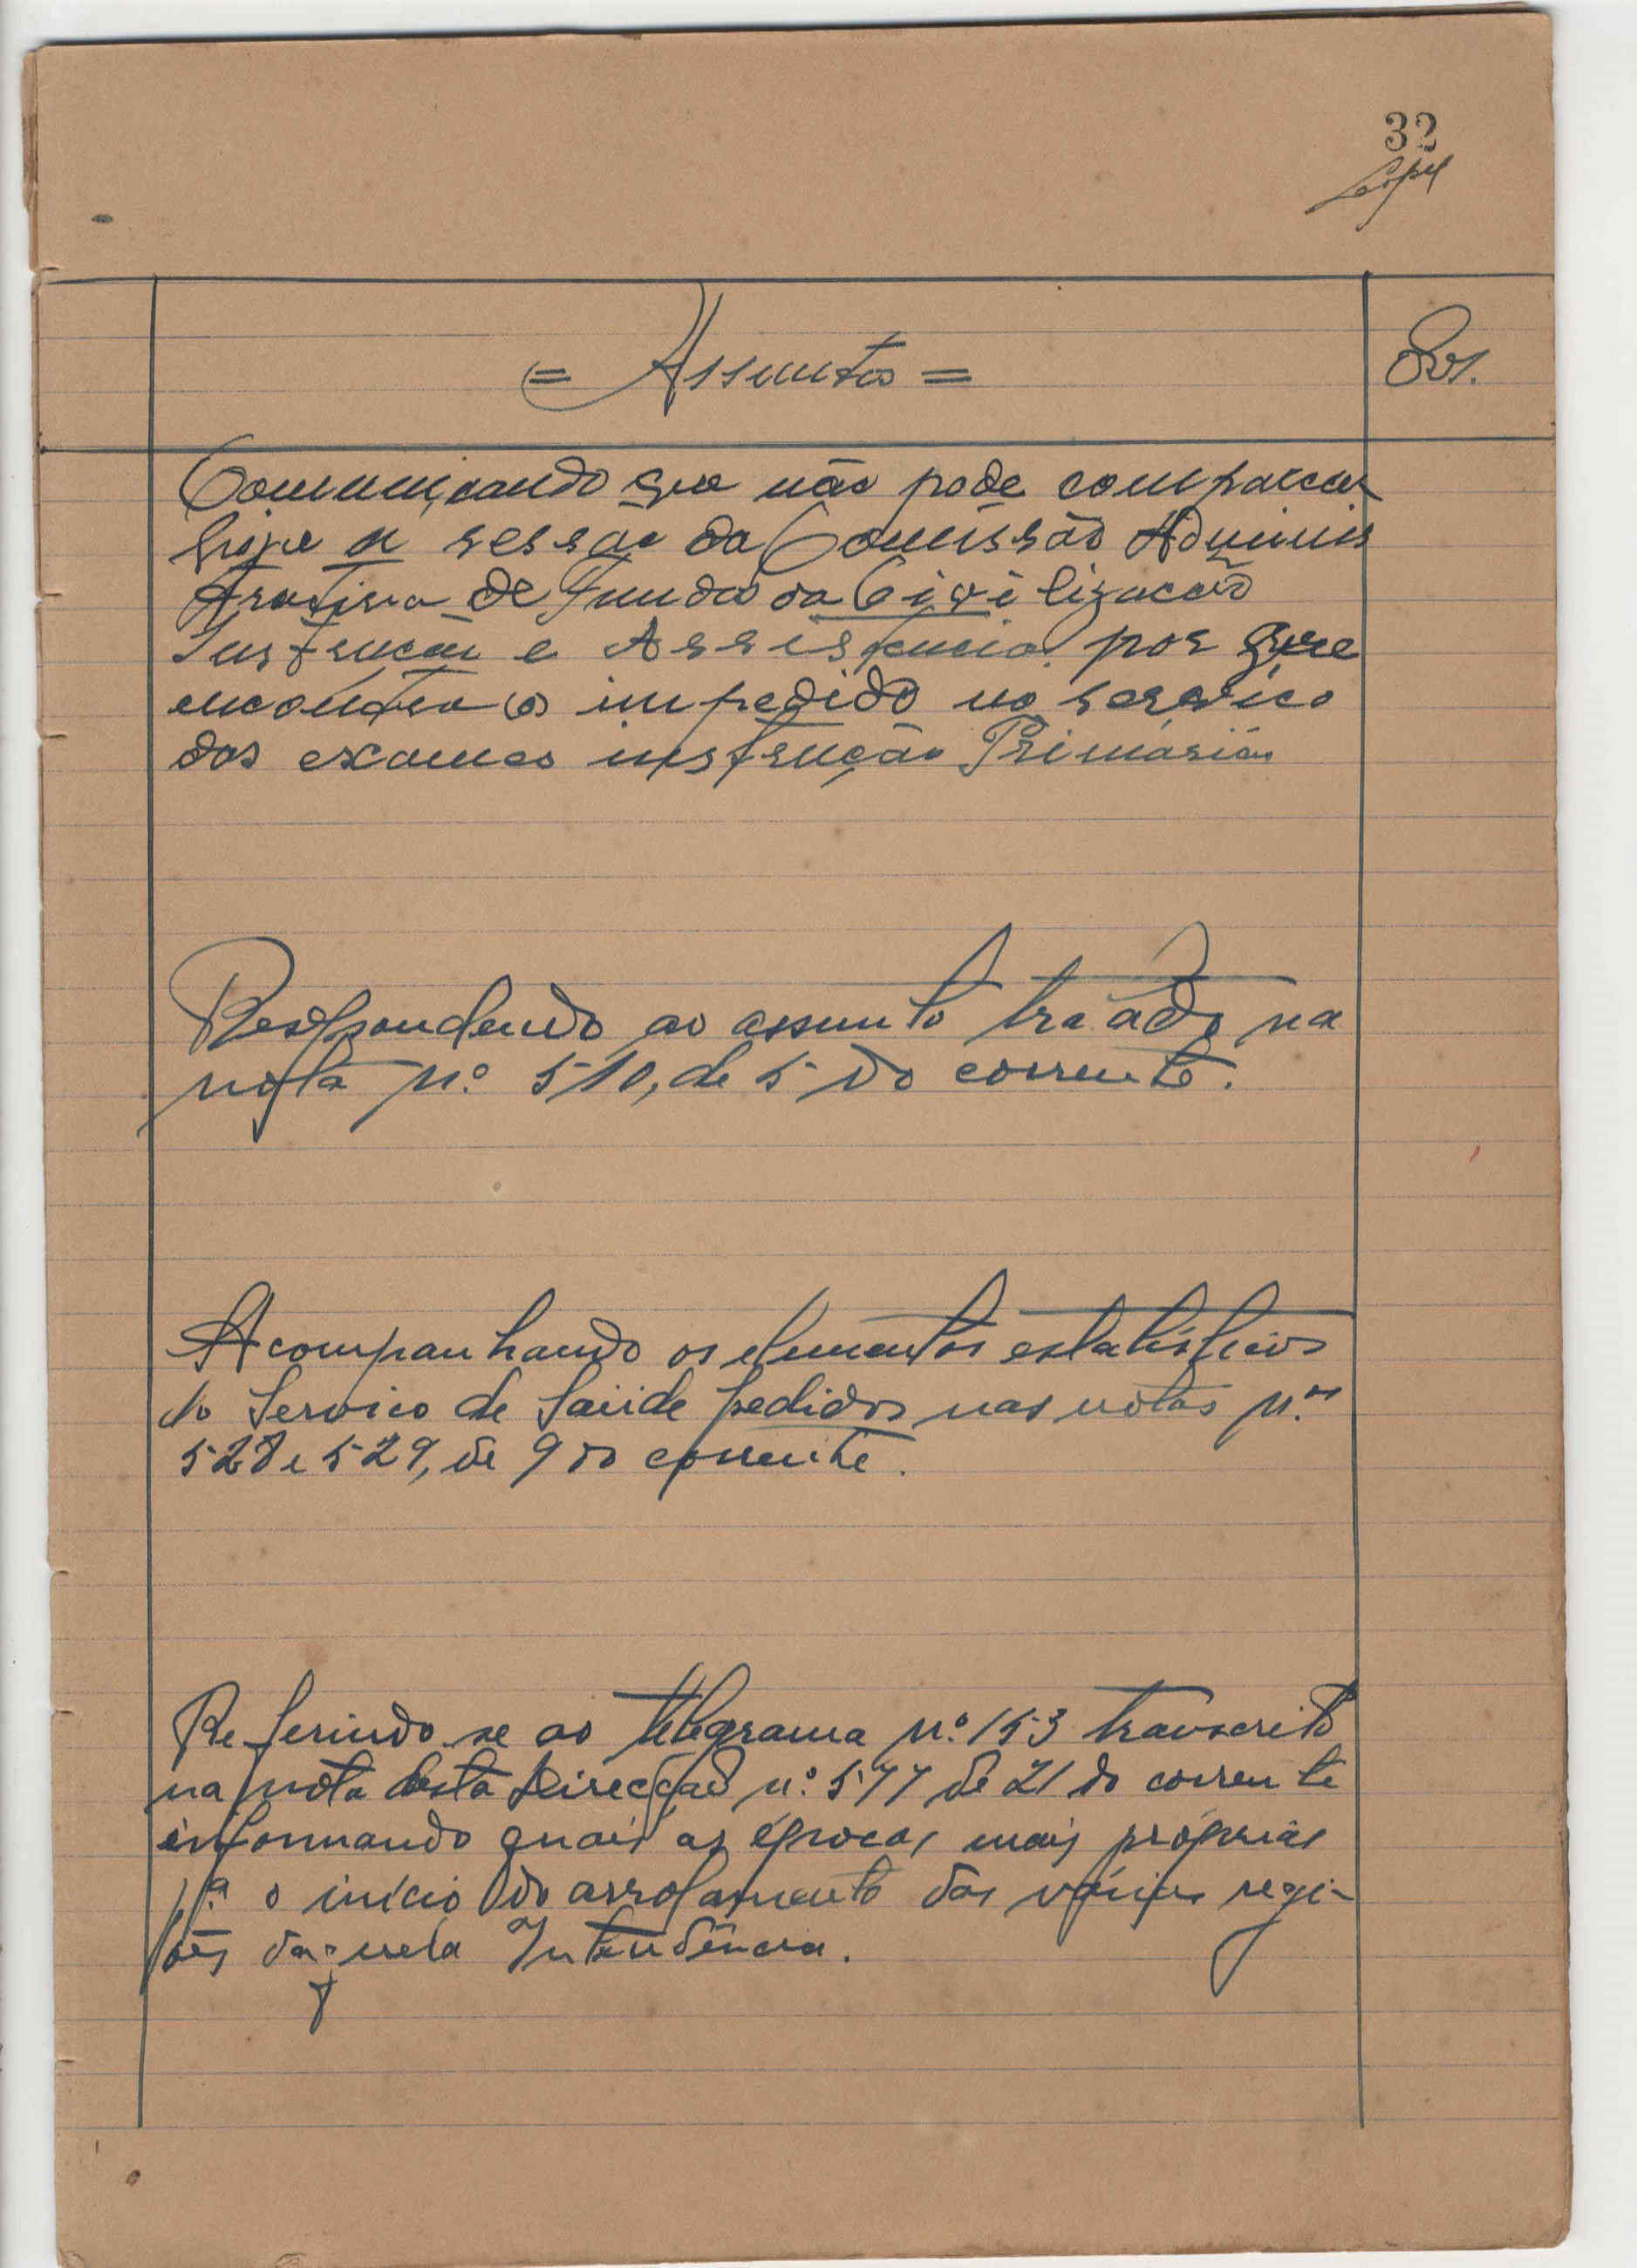 32
= Assuntos =
Obs.
Comunicando que não pode comparecer
hoje a sessão da Comissão Adminis
trativa de Fundos da Civilização
Instrução e Assistencia por que
encontra impedido no serviço
dos exames instrução Primária
Respondendo ao assunto tratado na
nota nº 510, de 5 do corrente.
Acompanhando os elementos estatísticos
do Serviço de Saúde pedidos nas notas n.os
528 e 529, de 9 do corrente.
Referindo se ao telegrama nº 153 transcrito
na nota desta Direcção nº 577 de 21 do corrente
informando quais as épocas mais próprias
p.ª o início do arrolamento das várias regi-
ões daquela Intendência.